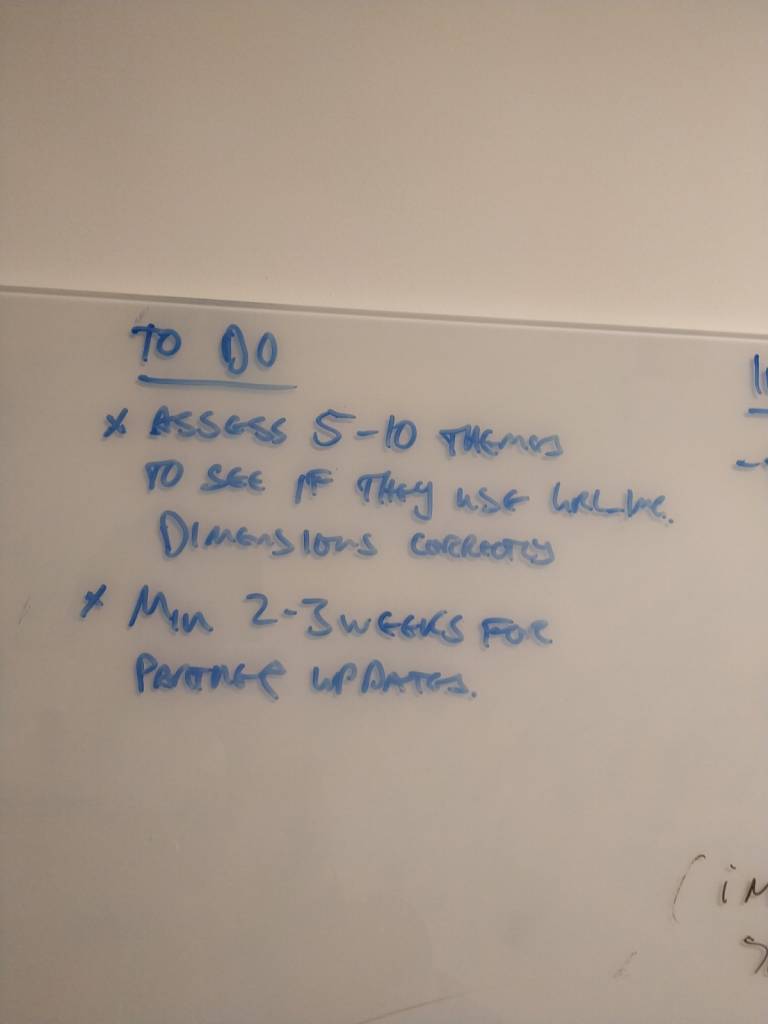 TO DO
* ASSESS 5-10 THEMES
TO SEE IF THEY USE
DIMENSIONS CORRECTLY
* MIN 2-3 WEEKS FOR
PARTNER UPDATES.
(IM